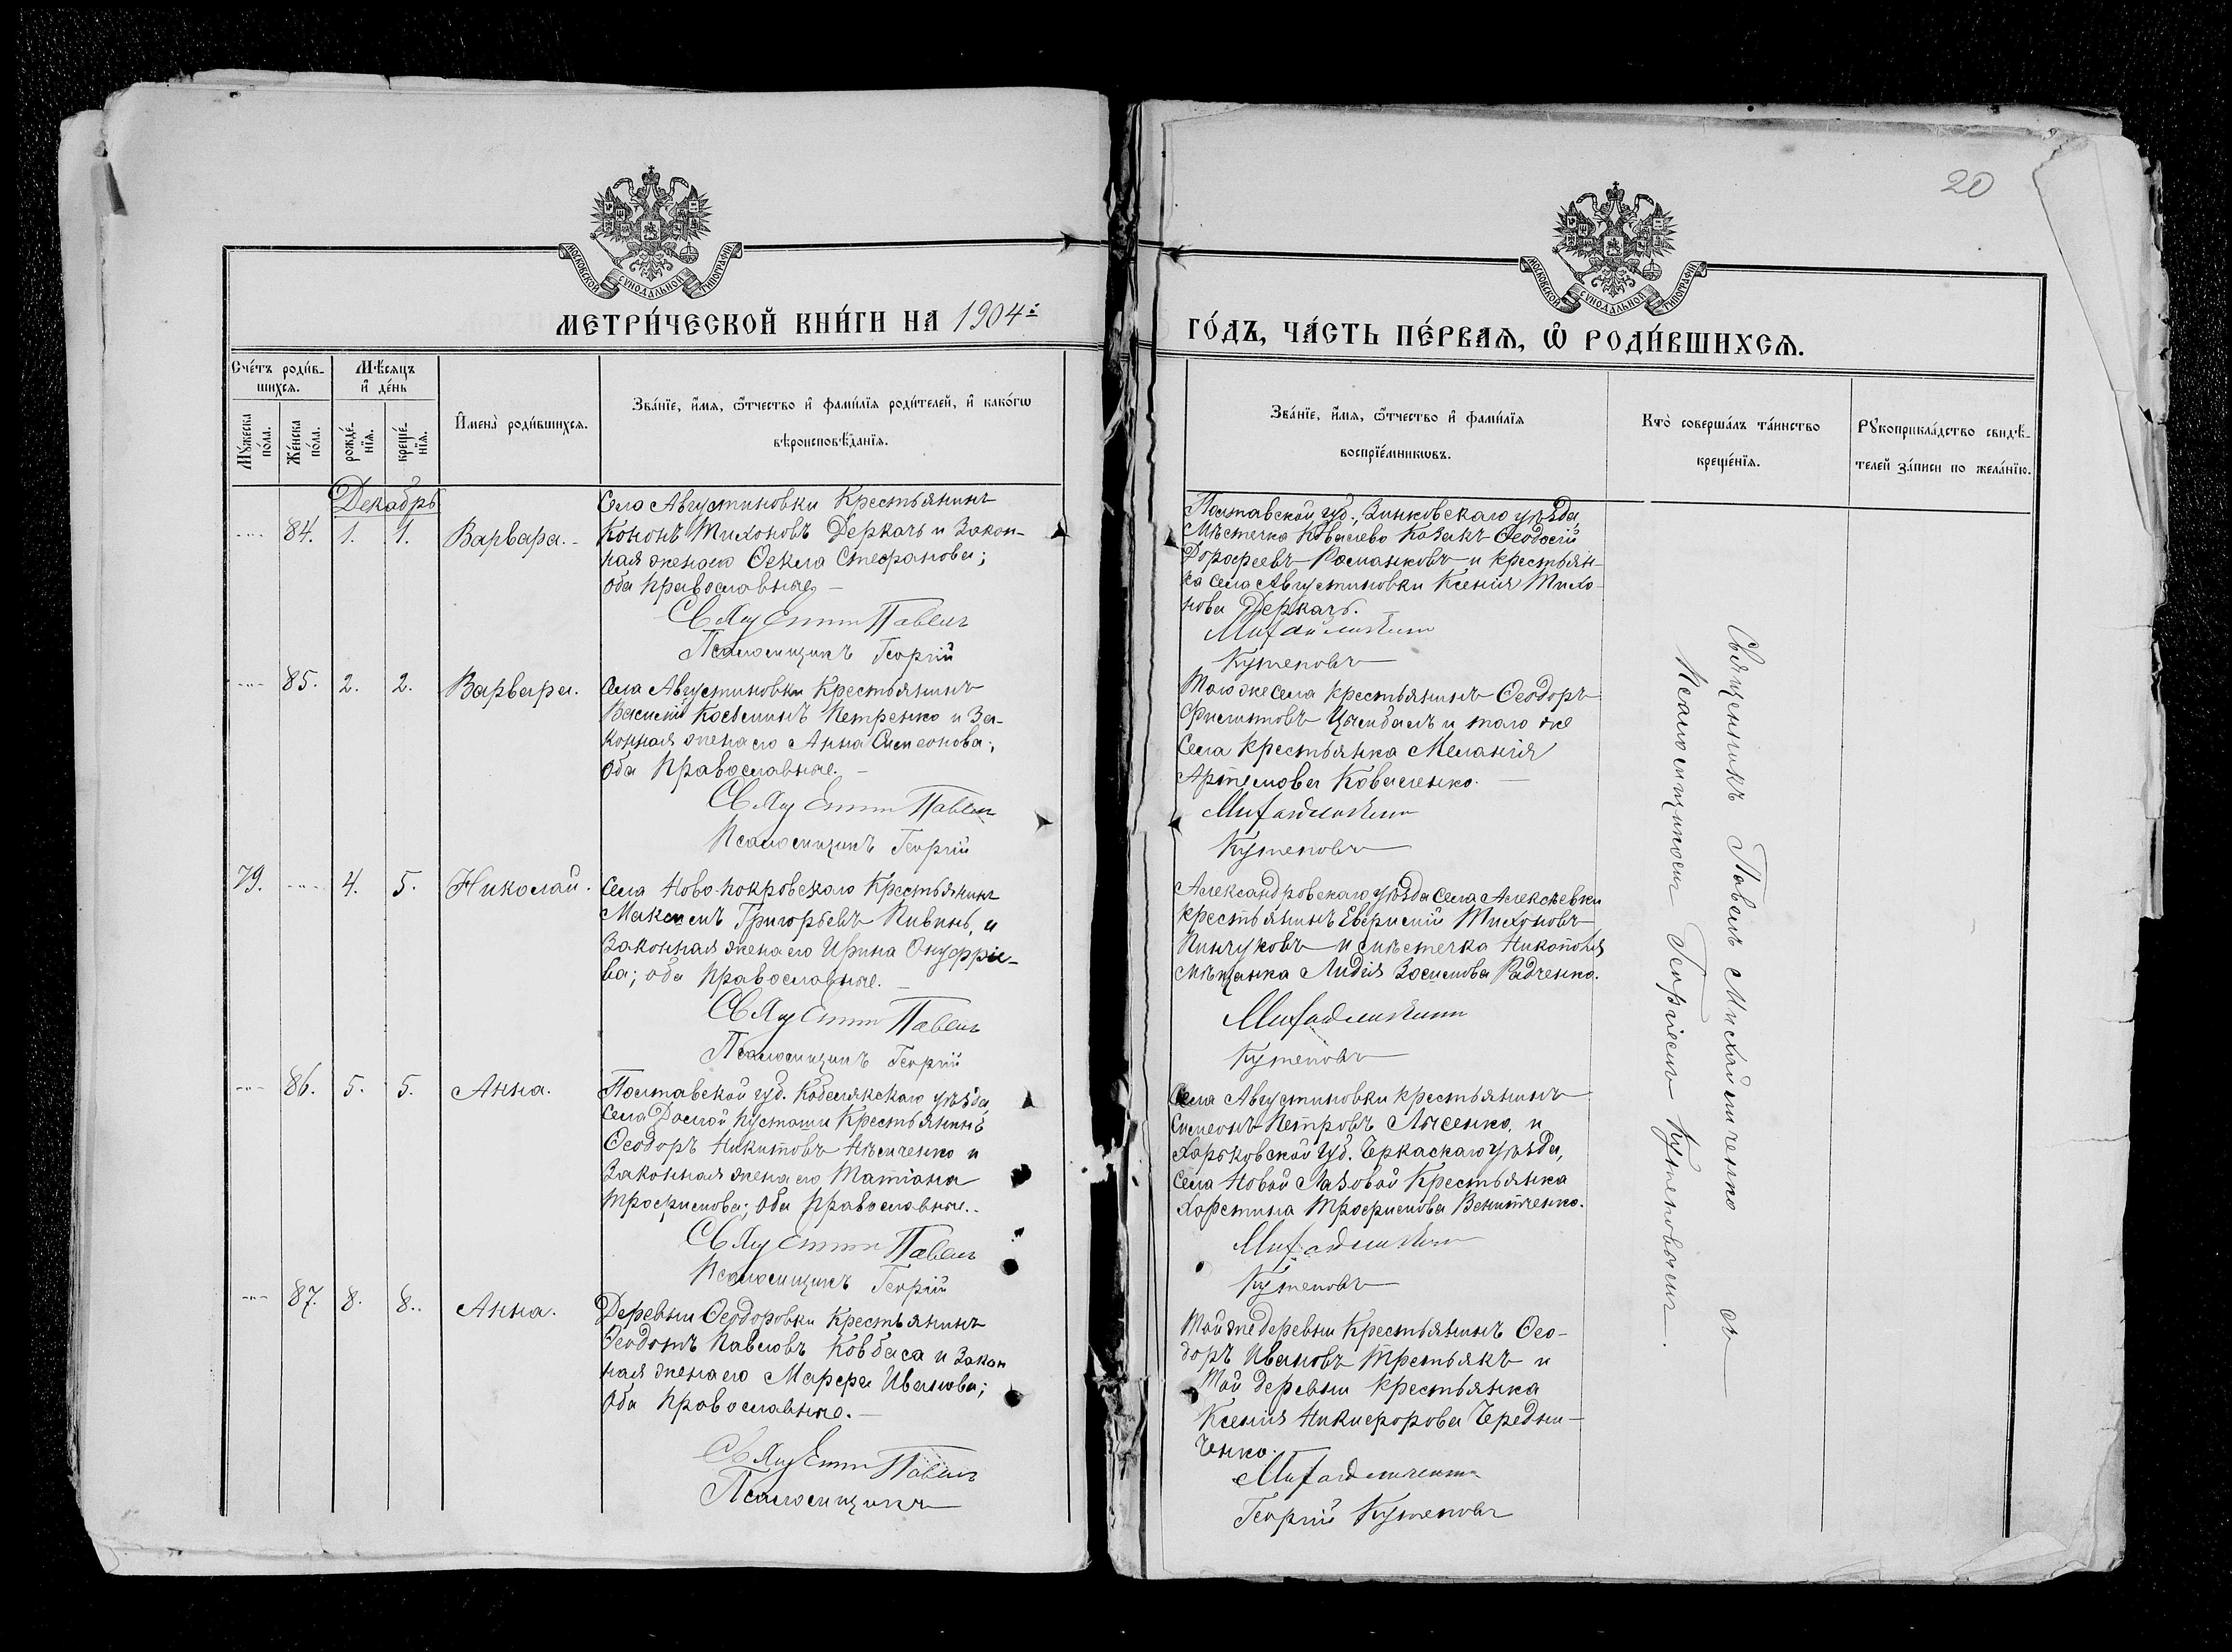 20
МОСКОВСКОЙ СѴНОДАЛЬНОЙ ТИПОГРАФІИ
МОСКОВСКОЙ СѴНОДАЛЬНОЙ ТИПОГРАФІИ
МЕТРИ́ЧЕСКОЙ КНИ́ГИ НА 1904 ГО́ДЪ, ЧА́СТЬ ПЕ́РВАѦ, Ѽ РОДИ́ВШИХСѦ.
Сче́тъ роди́в-
шихсѧ.
Мѣ́сяцъ
и҆ де́нь
Мꙋ́жеска
по́ла.
Же́нска
по́ла.
рожде́-
нїѧ.
креще́-
нїѧ.
И҆мена̀ роди́вшихсѧ.
Зва́нїе, и҆́мѧ, ѻ҆́тчество и҆ фами́лїѧ роди́телей, и҆ како́гѡ
вѣроисповѣ́данїѧ.
Зва́нїе, и҆́мѧ, ѻ҆́тчество и҆ фами́лїѧ
воспрїе́мникѡвъ.
Кто̀ соверша́лъ та́инство
креще́нїѧ.
Рꙋкоприкла́дство свидѣ́-
телей за́писи по жела́нїю.
Декабрь
84. 1. 1. Варвара.
Села Августиновки Крестьянинъ
Кононъ Тихоновъ Деркачъ и Закон-
ная жена его Ѳекла Стефанова;
оба православные
Священникъ Павелъ
Псаломщикъ Георгій
Полтавской губ., Зинковскаго уѣзда,
Мѣстечка Ковалево Козакъ Ѳеодосій
Дорофеевъ Романковъ и крестьян-
ка села Августиновки Ксенія Тихо-
нова Деркачъ.
Михайличенко
Кутеповъ
85. 2. 2. Варвара.
Села Августиновки Крестьянинъ
Василій Косминъ Петренко и За-
конная жена его Анна Симеонова;
оба Православные.
Священникъ Павелъ
Псаломщикъ Георгій
Того же села крестьянинъ Ѳеодоръ
Филиповъ Цымбалъ и того же
Села крестьянка Меланія
Артемова Коваленко.
Михайличенко
Кутеповъ
79. 4. 5. Николай.
Села Ново-покровскаго Крестьянинъ
Максимъ Григорьевъ Пивинь, и
Законная жена его Ирина Онуфріе-
ва; оба православные.
Священникъ Павелъ
Псаломщикъ Георгій
Александровскаго уѣзда Села Алексѣевки
крестьянинъ Евфимій Тихоновъ
Пинчуковъ и мѣстечка Никополя
мѣщанка Лидія Зосимова Радченко.
Михайличенко
Кутеповъ
86. 5. 5. Анна.
Полтавской губ. Кобелякскаго уѣзда
Села Долгой пустоши Крестьянинъ
Ѳеодоръ Никитовъ Нѣмченко и
Законная жена его Татіана
Трофимова; оба Православные.
Священникъ Павелъ
Псаломщикъ Георгій
Села Августиновки крестьянинъ
Симеонъ Петровъ Лысенко, и
Харьковской Губ. Черкаскаго Уѣзда,
Села Новой Лазовой Крестьянка
Харстина Трофимова Венитченко.
Михайличенко
Кутеповъ
87. 8. 8. Анна.
Деревни Ѳеодоровки Крестьянинъ
Ѳеодотъ Павловъ Ковбаса и Закон
ная жена его Марфа Иванова;
оба православные.
Священникъ Павелъ
Псаломщикъ
Той же деревни Крестьянинъ Ѳео-
доръ Ивановъ Третьякъ и
Той деревни крестьянка
Ксенія Никифорова Чередни-
ченко.
Михайличенко
Георгій Кутеповъ
Священникъ Павелъ Михайличенко съ
Псаломщикомъ Георгіемъ Кутеповымъ.